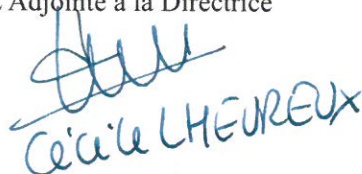 Adjointe à la Directrice
Cécile LHEUREUX